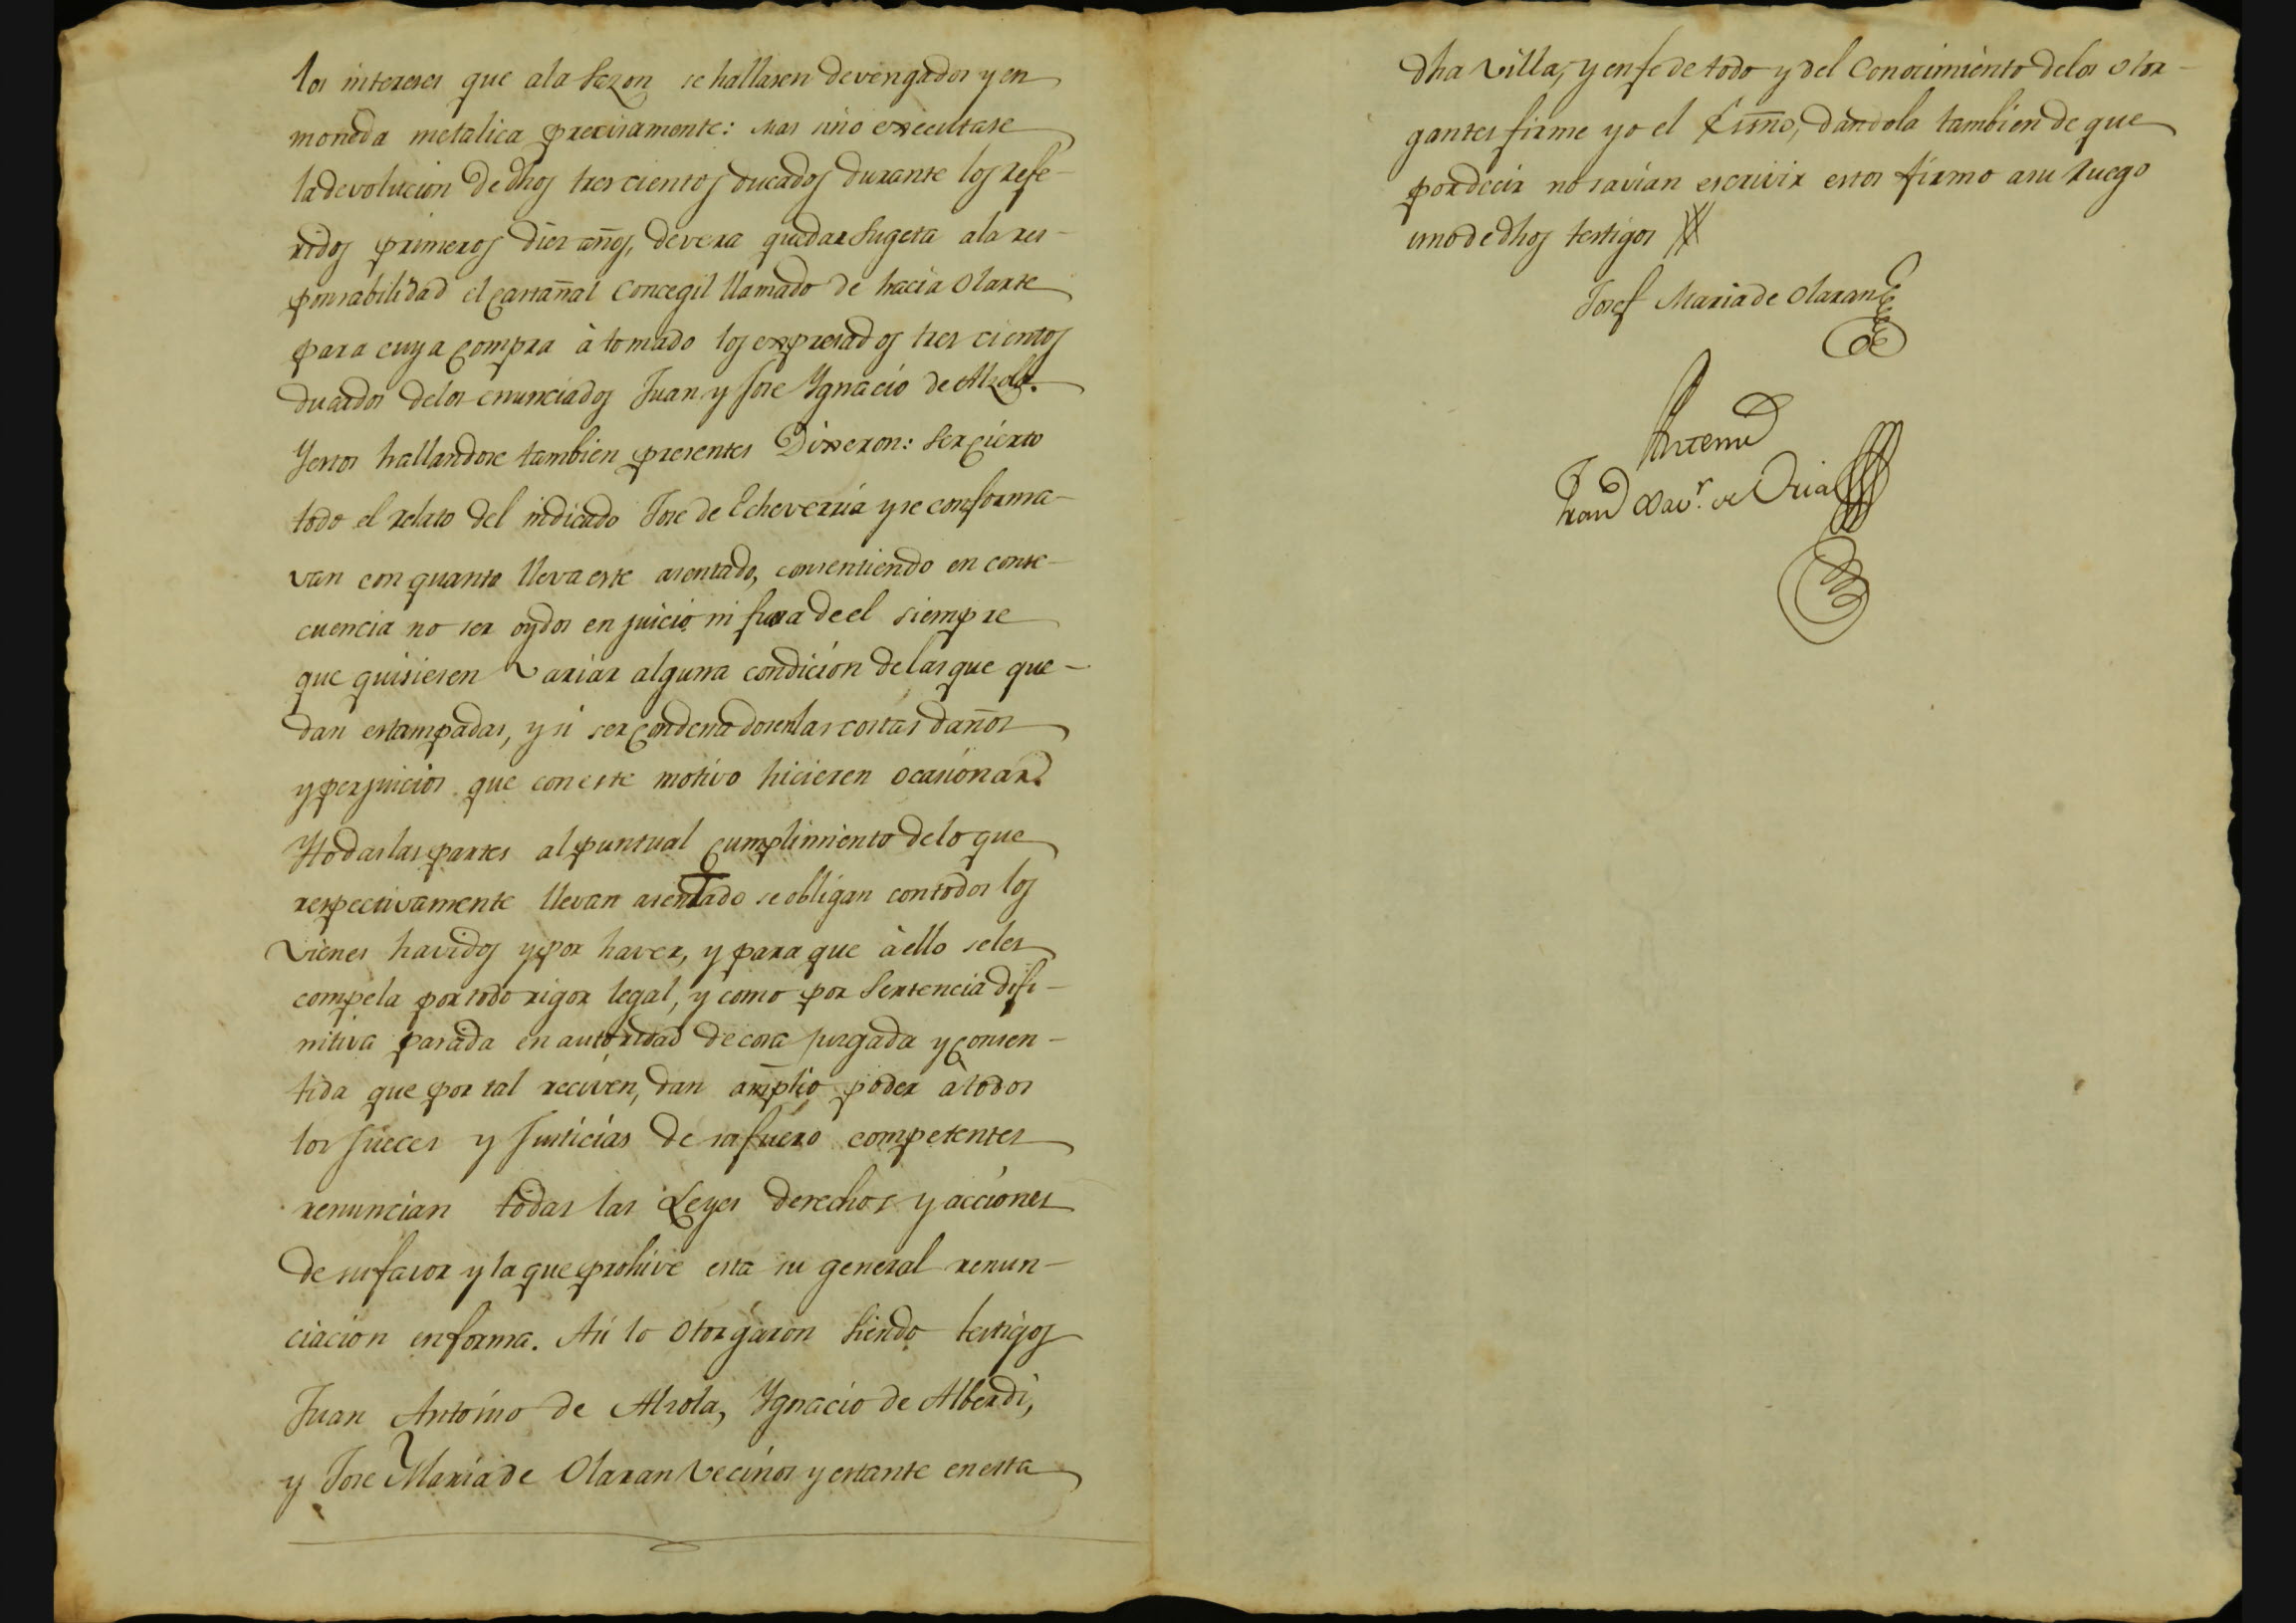 los intereses que ala sazon se hallasen devengados y en
moneda metalica precisamente: mas sino executase
la devolucion de dhos tres cientos ducados durante los refe-
ridos primeros diez años, devera quedar sugeta ala res-
ponsabilidad el castañal concegil llamado de hacia Olarte
para cuya compra à tomado los expresados tres cientos
ducados delos enunciados Juan y Jose Ygnacio de Alzola.
Yestos hallandose tambien presentes Dixeron: ser cierto
todo el relato del indicado Jose de Echeverria y se conforma-
van con quanto lleva este asentado, consentiendo en conse-
cuencia no ser oydos en juicio ni fuera de el siempre
que quisiesen variar alguna condicion delas que que-
dan estampadas, y si ser condenados enlas costas daños
y perjuicios que con este motivo hicieren ocasionar.
Y todas las partes al puntual cumplimiento delo que
respectivamente llevan asentado se obligan con todos los
vienes havidos y por haver, y para que à ello seles
compela por todo rigor legal, y como por sentencia difi-
nitiva pasada en autoridad de cosa jusgada y consen-
tida que por tal reciven, dan amplio poder à todos
los Jueces y Justicias de su fuero competentes
renuncian todas las Leyes derechos y acciones
de su favor y la que prohive esta su general renun-
ciacion en forma. Asi lo otorgaron siendo testigos
Juan Antonio de Alzola, Ygnacio de Alberdi,
y Jose Maria de Olaran vecinos y estante en esta
dha villa, y en fe de todo y del conocimiento delos otor-
gantes firme yo el Essno, dandola tambien de que
por decir no savian escrivir estos firmo asu ruego
uno de dhos testigos
Josef Maria de Olaran
Antemi
Fran Xav.r de Oria